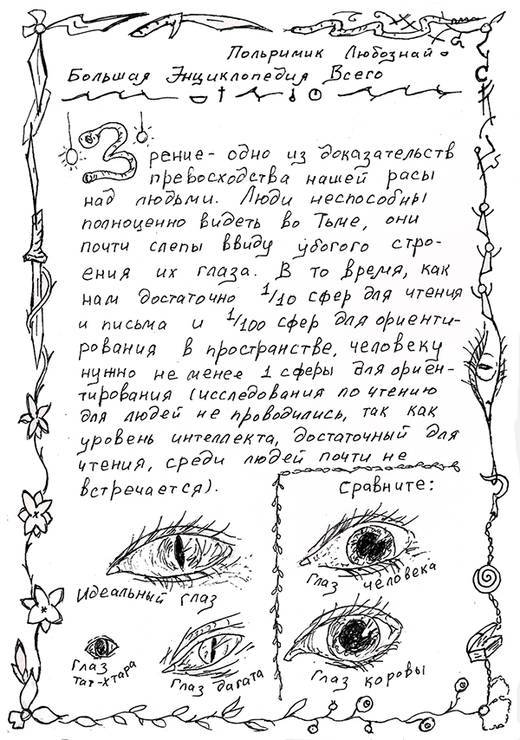 Польримик Любознай
Большая Энциклопедия Всего
Зрение - одно из доказательств
превосходства нашей расы
над людьми. Люди неспособны
полноценно видеть во Тьме, они
почти слепы ввиду убогого стро-
ения их глаза. В то время, как
нам достаточно 1/10 сфер для чтения
и письма и 1/100 сфер для ориенти-
рования в пространстве, человеку
нужно не менее 1 сферы для ориен-
тирования (исследования по чтению
для людей не проводились, так как
уровень интеллекта, достаточный для
чтения, среди людей почти не
встречается).
Идеальный глаз
глаз
тат-хтара
глаз дагата
Сравните:
глаз человека
глаз коровы